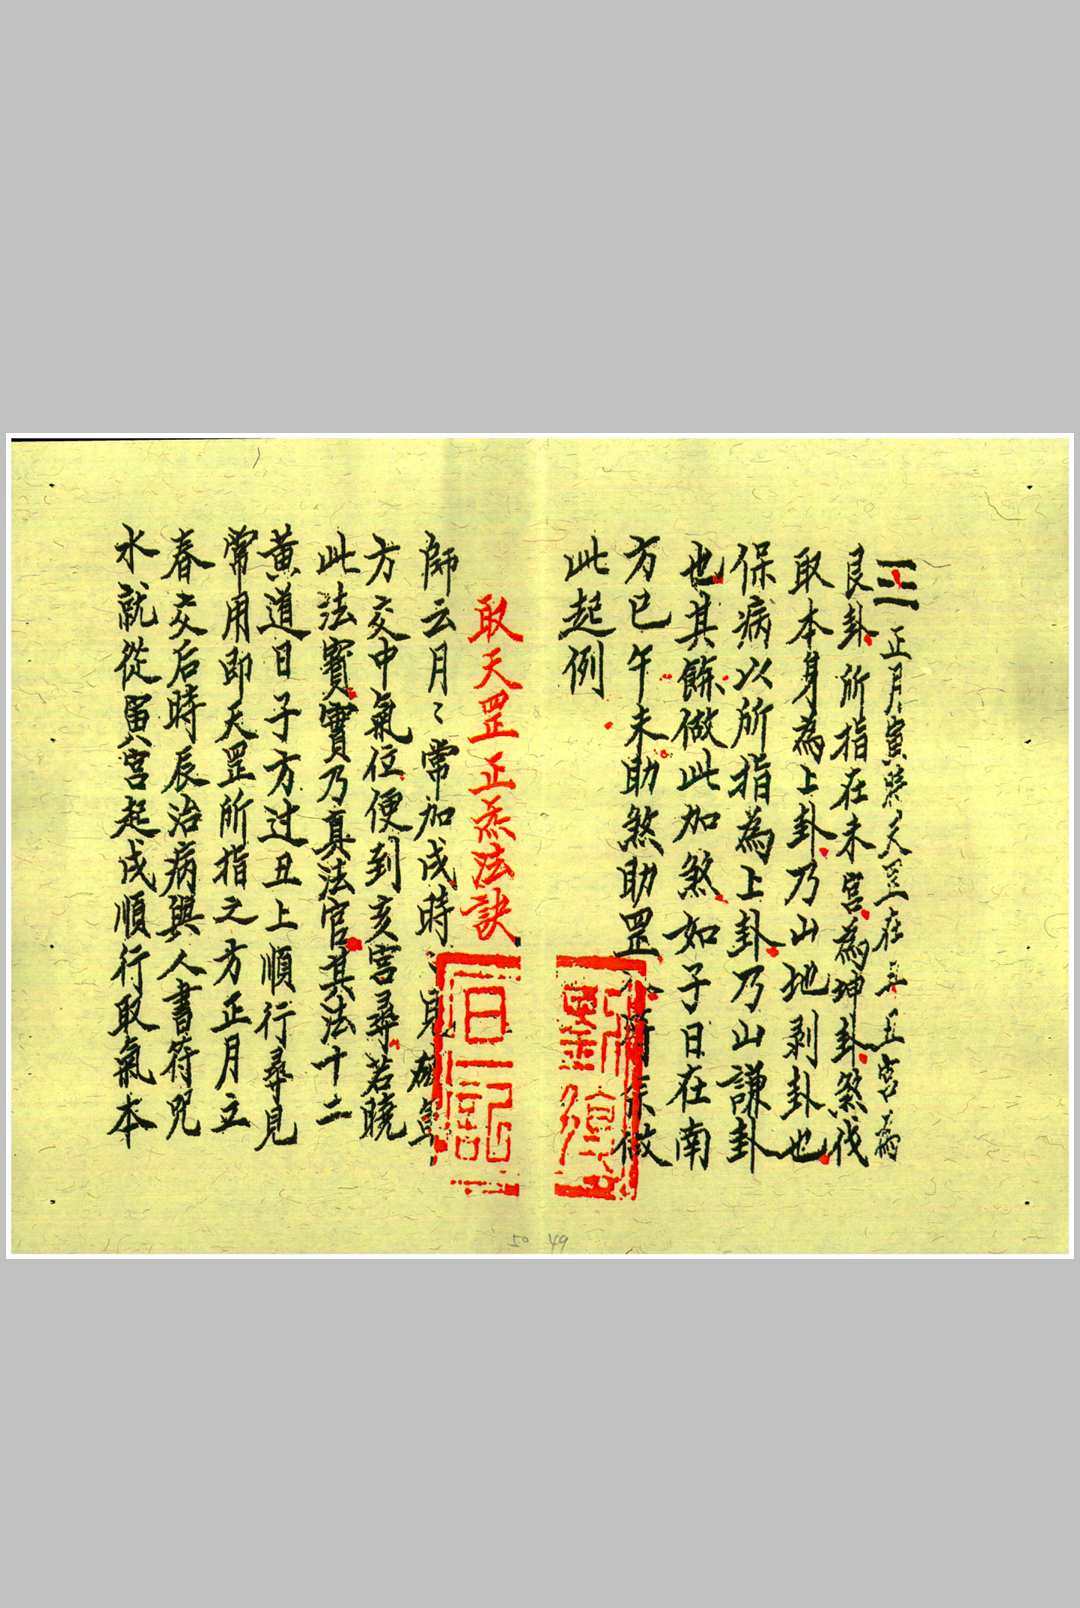 三 正月寅時天罡在丑丑宮為
艮卦所指在未宮為坤卦煞伐
取本身為上卦乃山地剥卦也
保病以所指為上卦乃山謙卦
也其餘做此加煞如子日在南
方巳午未助煞助罡 做
此起例
取天罡正炁法訣
師云月〻常加戌時 見
方交中氣位便到亥宮尋若曉
此法寶寶乃真法官其法十二
黄道日子方过丑上順行尋見
常用即天罡所指之方正月立
春交后時辰治病與人書符咒
水就從寅宮起戌順行取氣本
劉
日記
50 49